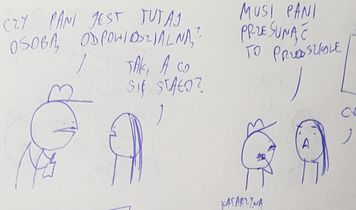 CZY PANI JEST TUTAJ
OSOBĄ ODPOWIEDZIALNĄ?
TAK, A CO
SIĘ STAŁO?
MUSI PANI
PRZESUNĄĆ
TO PRZEDSZKOLE
KATARZYNA